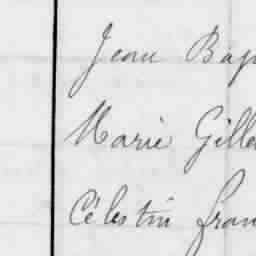 Jean Bap
Marie Gille
Célestin fran